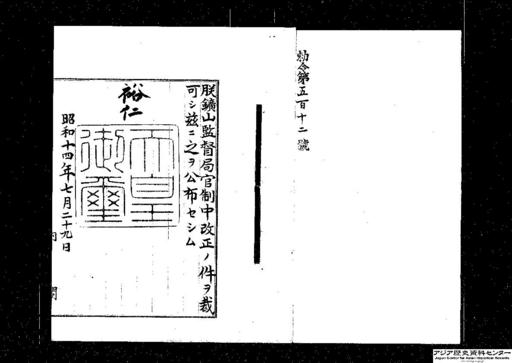 勅令第五百十二號
朕鑛山監督局官制中改正ノ件ヲ裁
可シ茲ニ之ヲ公布セシム
裕仁
天皇
御璽
昭和十四年七月二十九日
内
閣
アジア歴史資料センター
Japan Center for Asian Historical Records